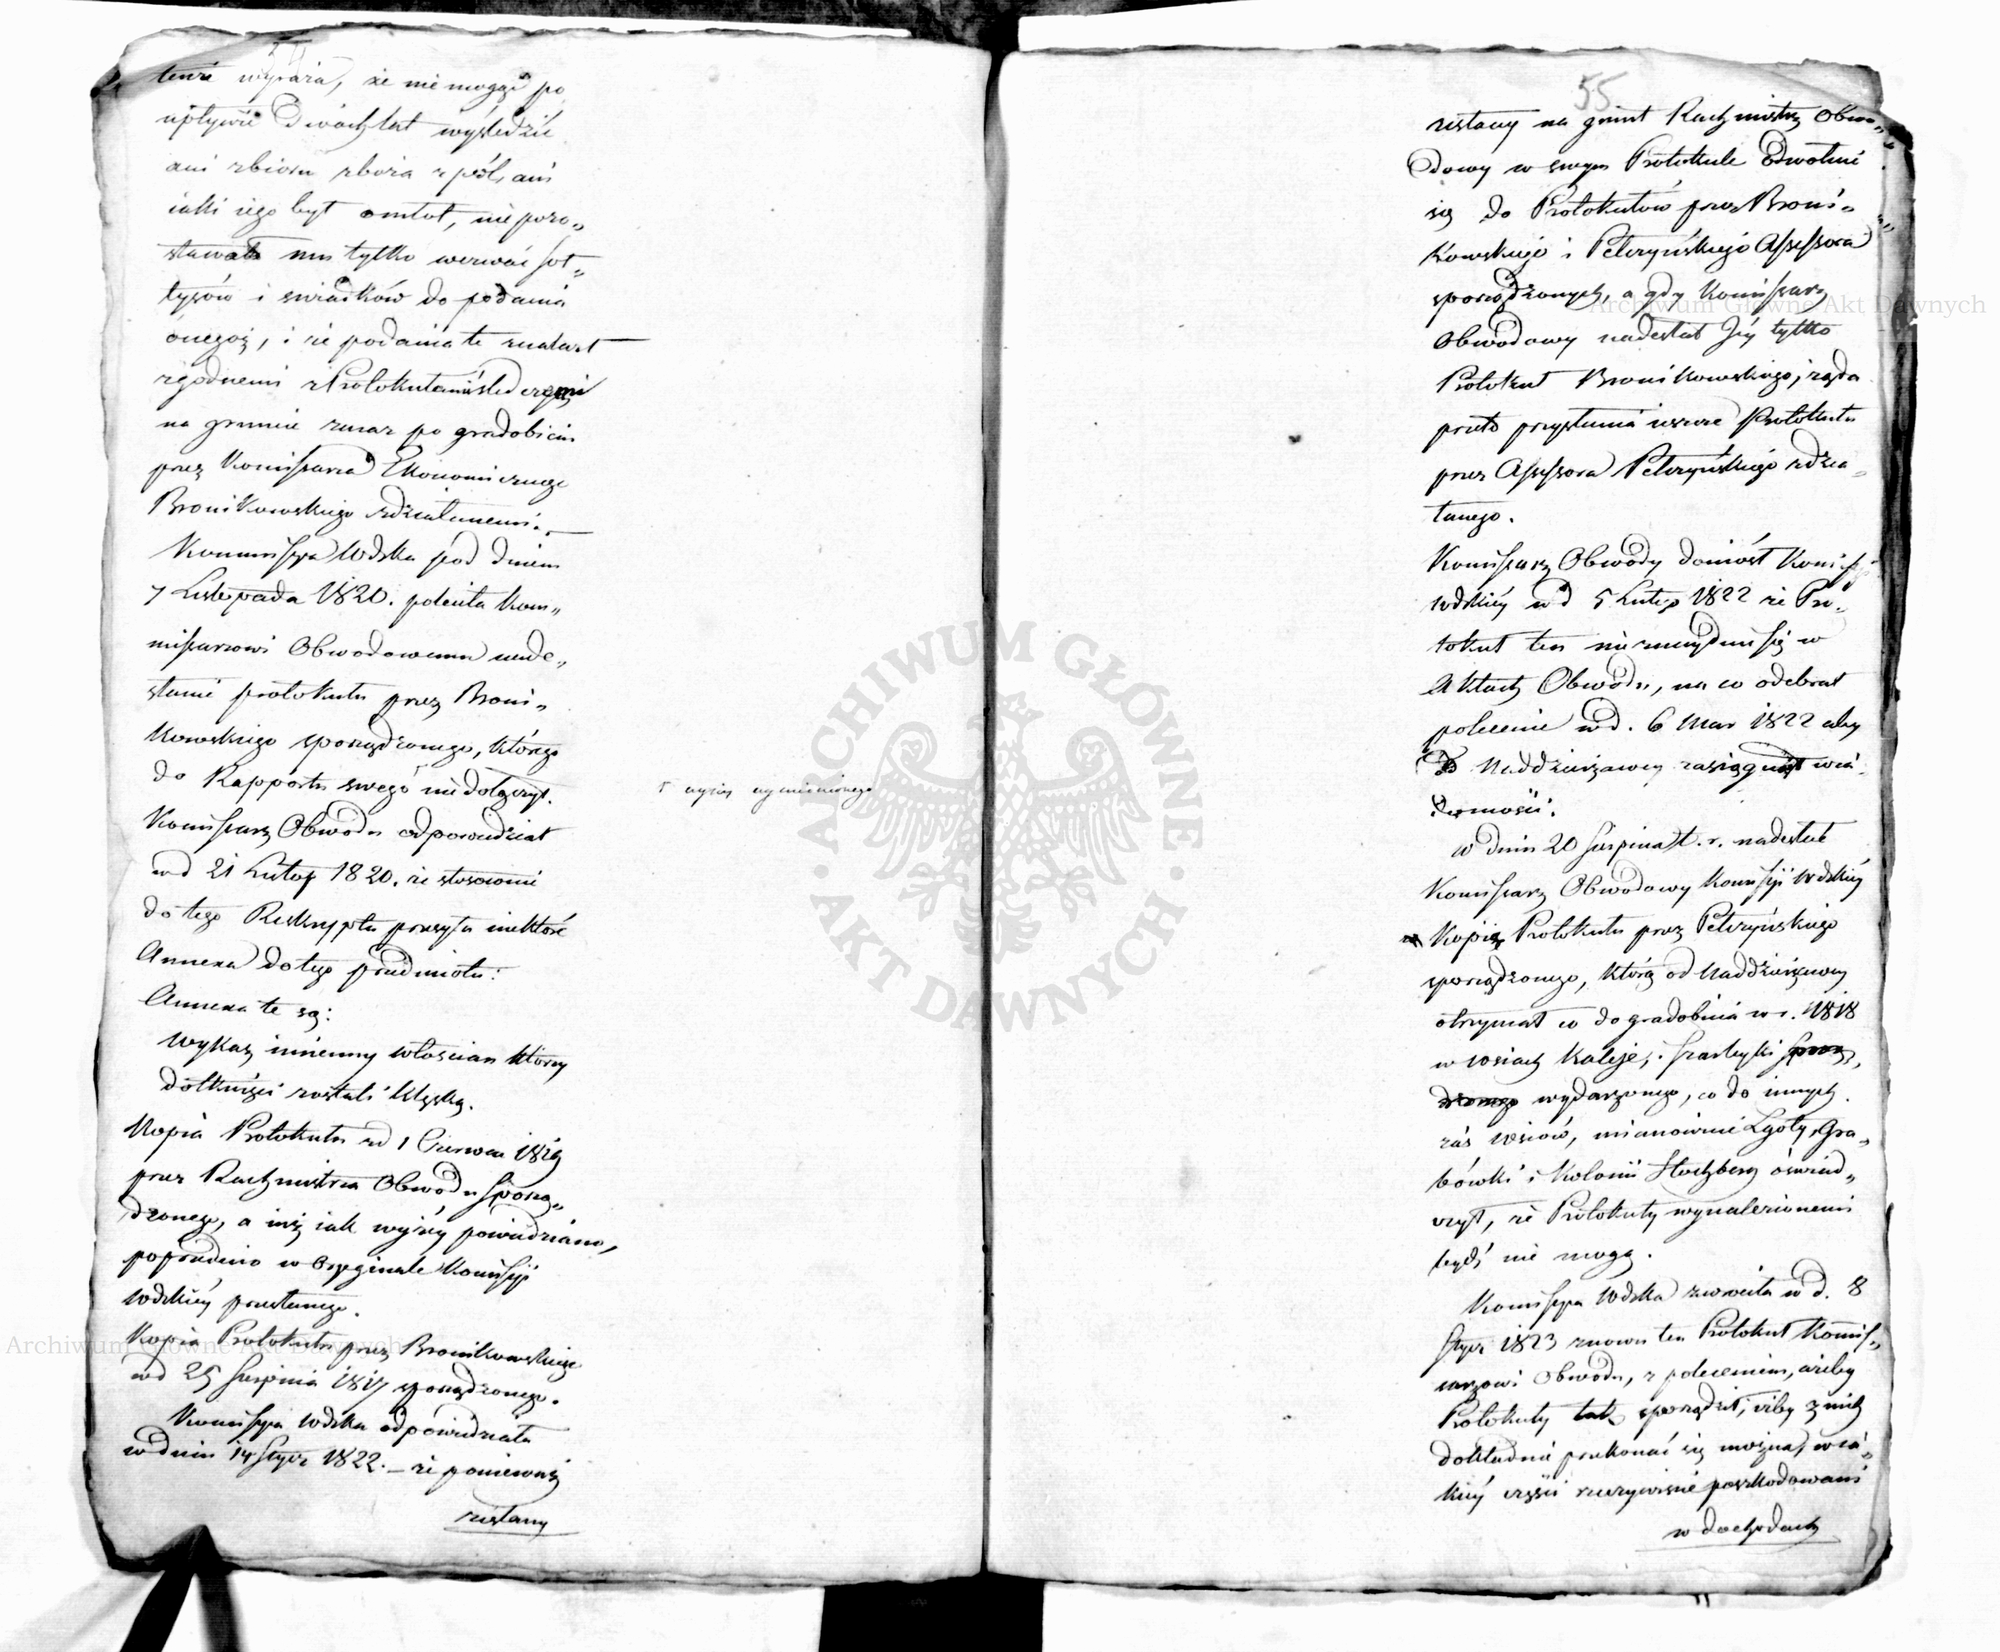 tenże wyraża, że nie mogąc po
upływie Dwóch lat wyśledzić
ani zbioru zboża z pól, ani
iakli iego był omłot, niepozo„
stawało mu tylko wezwać soł„
tysów i swiadków do podania
onegoż, i że podania te znalazł
zgodnemi z Protokułami śledczemi
na gruncie zaraz po gradobiciu
przez Kommissarza Ekonomicznego
Bronikowskiego zdziałanemi.
Kommissya Wdzka pod dniem
7 Listopada 1820. poleciła Kom„
missarzowi Obwodowemu nade„
słanie protokułu przez Broni„
kowskiego sporządzonego, którego
do Rapportu swego niedołączył.
Komissarz Obwodu odpowiedział
w d 21 Lutego 1820. że stosownie
do tego Reskryptu przesyła niektóre
Annexa do tego przedmiotu:
Annexa te są:
Wykaz imienny włościan którzy
dotknięci zostali klęską.
Kopia Protokułu z d 1 Czerwca 1819
przez Rachmistrza Obwodu sporzą„
dzonego, a iuż iak wyżéy powiedziano,
poprzednio w Oryginale Komissyi
Wdzkiéy przesłanego.
Kopia Protokułu przez Bronikowskiego
w d 25 Sierpnia 1817 sporządzonego.
Komissya Wdzka odpowiedziała
w dniu 14 Stycz 1822. – że ponieważ
zesłany
wyżéy wymienionego
55
zesłany na grunt Rachmistrz Obwo„
dowy w swym Protokule Odwołał
się do Protokułów przez Broni„
kowskiego i Petczyńskiego Assessora
sporządzonych, a gdy Komissarz
Obwodowy nadesłał Jéy tylko
Protokuł Bronikowskiego, żąda
przeto przysłania ieszcze Protokułu
przez Assessora Petczyńskiego zdzia„
łanego.
Komissarz Obwody doniósł Komissyi
Wdzkiéy w d 5 Lutego 1822 że Pro„
tokuł ten nie znayduie się w
Aktach Obwodu, na co odebrał
polecenie w d. 6 Mar 1822 aby
od Naddzierżawcy zasiągnął wia„
domości.
w dniu 20 Sierpnia t. r. nadesłał
Komissarz Obwodowy Komissyi Wdzkiéy
Kopią Protokułu przez Petczyńskiego
sporządzonego, którą od Naddzierżawcy
otrzymał co do gradobicia w r. 1818
w wsiach Kaleje, i Szarleyki sporzą„
dzonego wydarzonego, co do innych
zaś wsiów, mianowicie Lgoty, Gra„
bówki i Kolonii Hochberg oświad„
czył, że Protokuły wynalezionemi
bydź nie mogą.
Komissya Wdzka zwróciła w d. 8
Stycz 1823 znowu ten Protokuł Komis„
sarzowi Obwodu, z poleceniem, ażeby
Protokuły tak sporządził, żeby z nich
dokładnie przekonać się można, w ia„
kiéy części rzeczywiście poszkodowani
w dochodach
Archiwum Główne Akt Dawnych
Archiwum Główne Akt Dawnych
ARCHIWUM GŁÓWNE
AKT DAWNYCH